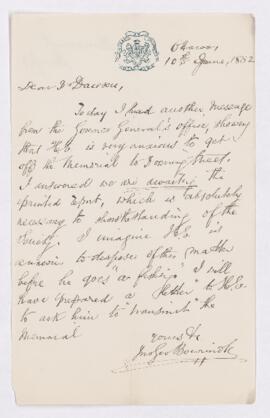 Ottawa,
10th June, 1882
Dear Dr Dawson,
Today I had another message
from the Governor General's office, showing
that H.E. is very anxious to get
off the Memorial to Downing Street.
I answered we are awaiting the
printed report, which is absolutely
necessary to the understanding of the
Society. I imagine H.E. is
anxious to dispose of this matter
before he goes "a fishing". I will
have prepared a "letter" to H.E.
to ask him to "transmit" the
Memorial
Yours &c
Jno Geo Bourinot